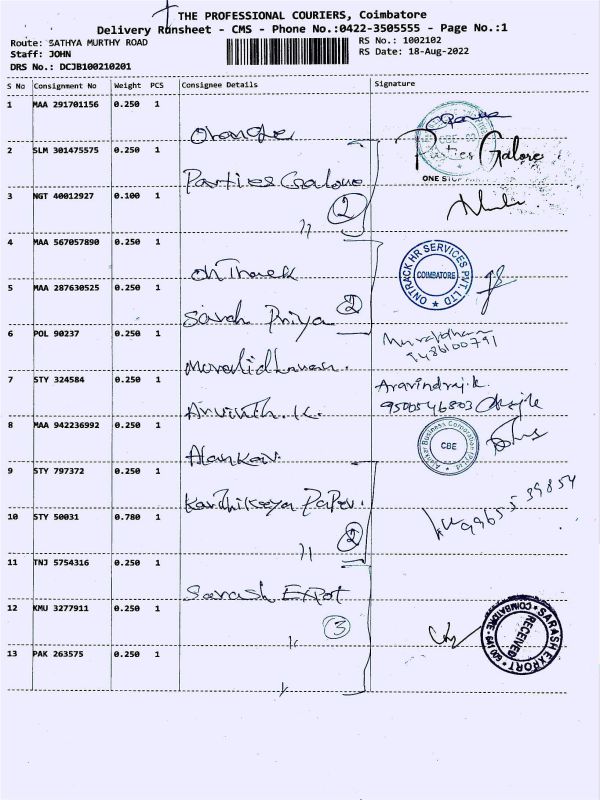 THE PROFESSIONAL COURIERS, Coimbatore
Delivery Runsheet - CMS - Phone No.:0422-3505555 - Page No.:1
Route: SATHYA MURTHY ROAD
RS No.: 1002102
Staff: JOHN
RS Date: 18-Aug-2022
DRS No.: DCJB100210201
S No Consignment No Weight PCS Consignee Details Signature
1 MAA 291701156 0.250 1
Orange
2 SLM 301475575 0.250 1
Parties Galore
Parties Galore
ONE STOP
3 NGT 40012927 0.100 1
〃 2
4 MAA 567057890 0.250 1
ONTRACK HR SERVICES PVT. LTD
COIMBATORE
5 MAA 287630525 0.250 1
Sarah Priya 2
6 POL 90237 0.250 1
9486100791
7 STY 324584 0.250 1
Aravindraj.k.
9500546803
Arvinth.K.
8 MAA 942236992 0.250 1
CBE
Alankar
9 STY 797372 0.250 1
Karthikeya Paper.
99655 39854
10 STY 50031 0.780 1
〃 2
11 TNJ 5754316 0.250 1
Sarash Expot
12 KMU 3277911 0.250 1
3
SARASH EXPORT
RECEIVED
COIMBATORE - 641 009
13 PAK 263575 0.250 1